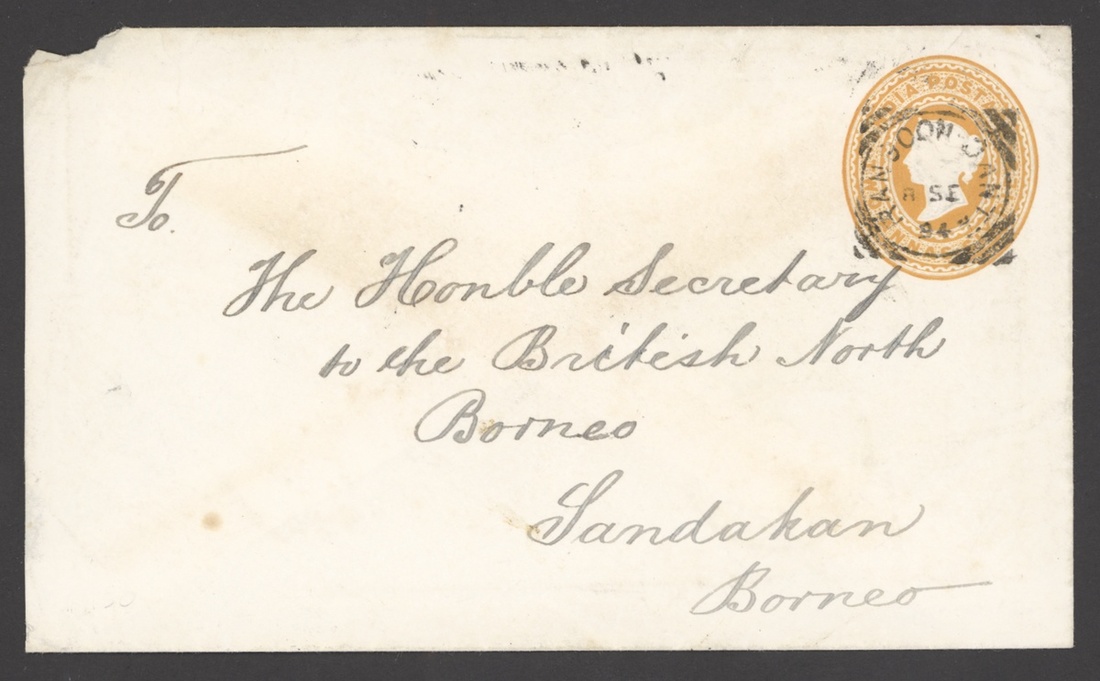 To.
The Honble Secretary
to the British North
Borneo
Sandakan
Borneo
INDIA POSTAGE
ANNAS
SE
94